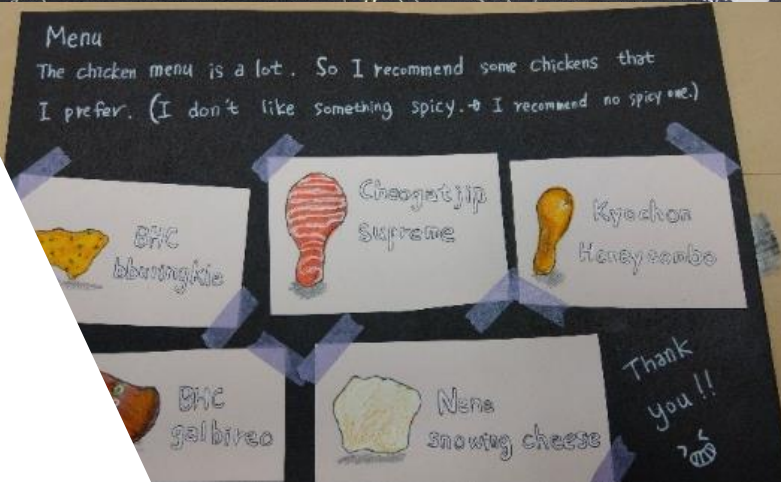 Menu
The chicken menu is a lot. So I recommend some chickens that
I prefer. (I don't like something spicy. → I recommend no spicy one.)
BHC
bburingkle
Cheogatjip
Supreme
Kyochon
Honeycombo
BHC
galbireo
Nene
snowing cheese
Thank
you!!